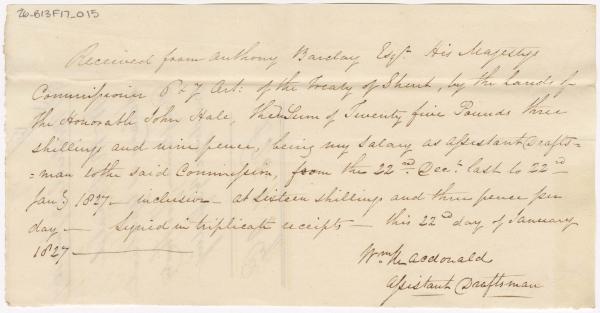 26-B13F17_015
Received from Anthony Barclay Esqr. His Majestys
Commissioner 6 & 7 Art: of the Treaty of Ghent, by the hands of
the Honorable John Hale, the Sum of Twenty five Pounds three
shillings and nine pence, being my salary as assistant Drafts-
=man to the said Commission, from the 22nd. Decr. last to 22nd
Jany 1827 — inclusive — at sixteen shillings and three pence per
day — Signed in triplicate receipts — this 22d day of January
1827 —
Wm. Macdonald
Assistant Draftsman